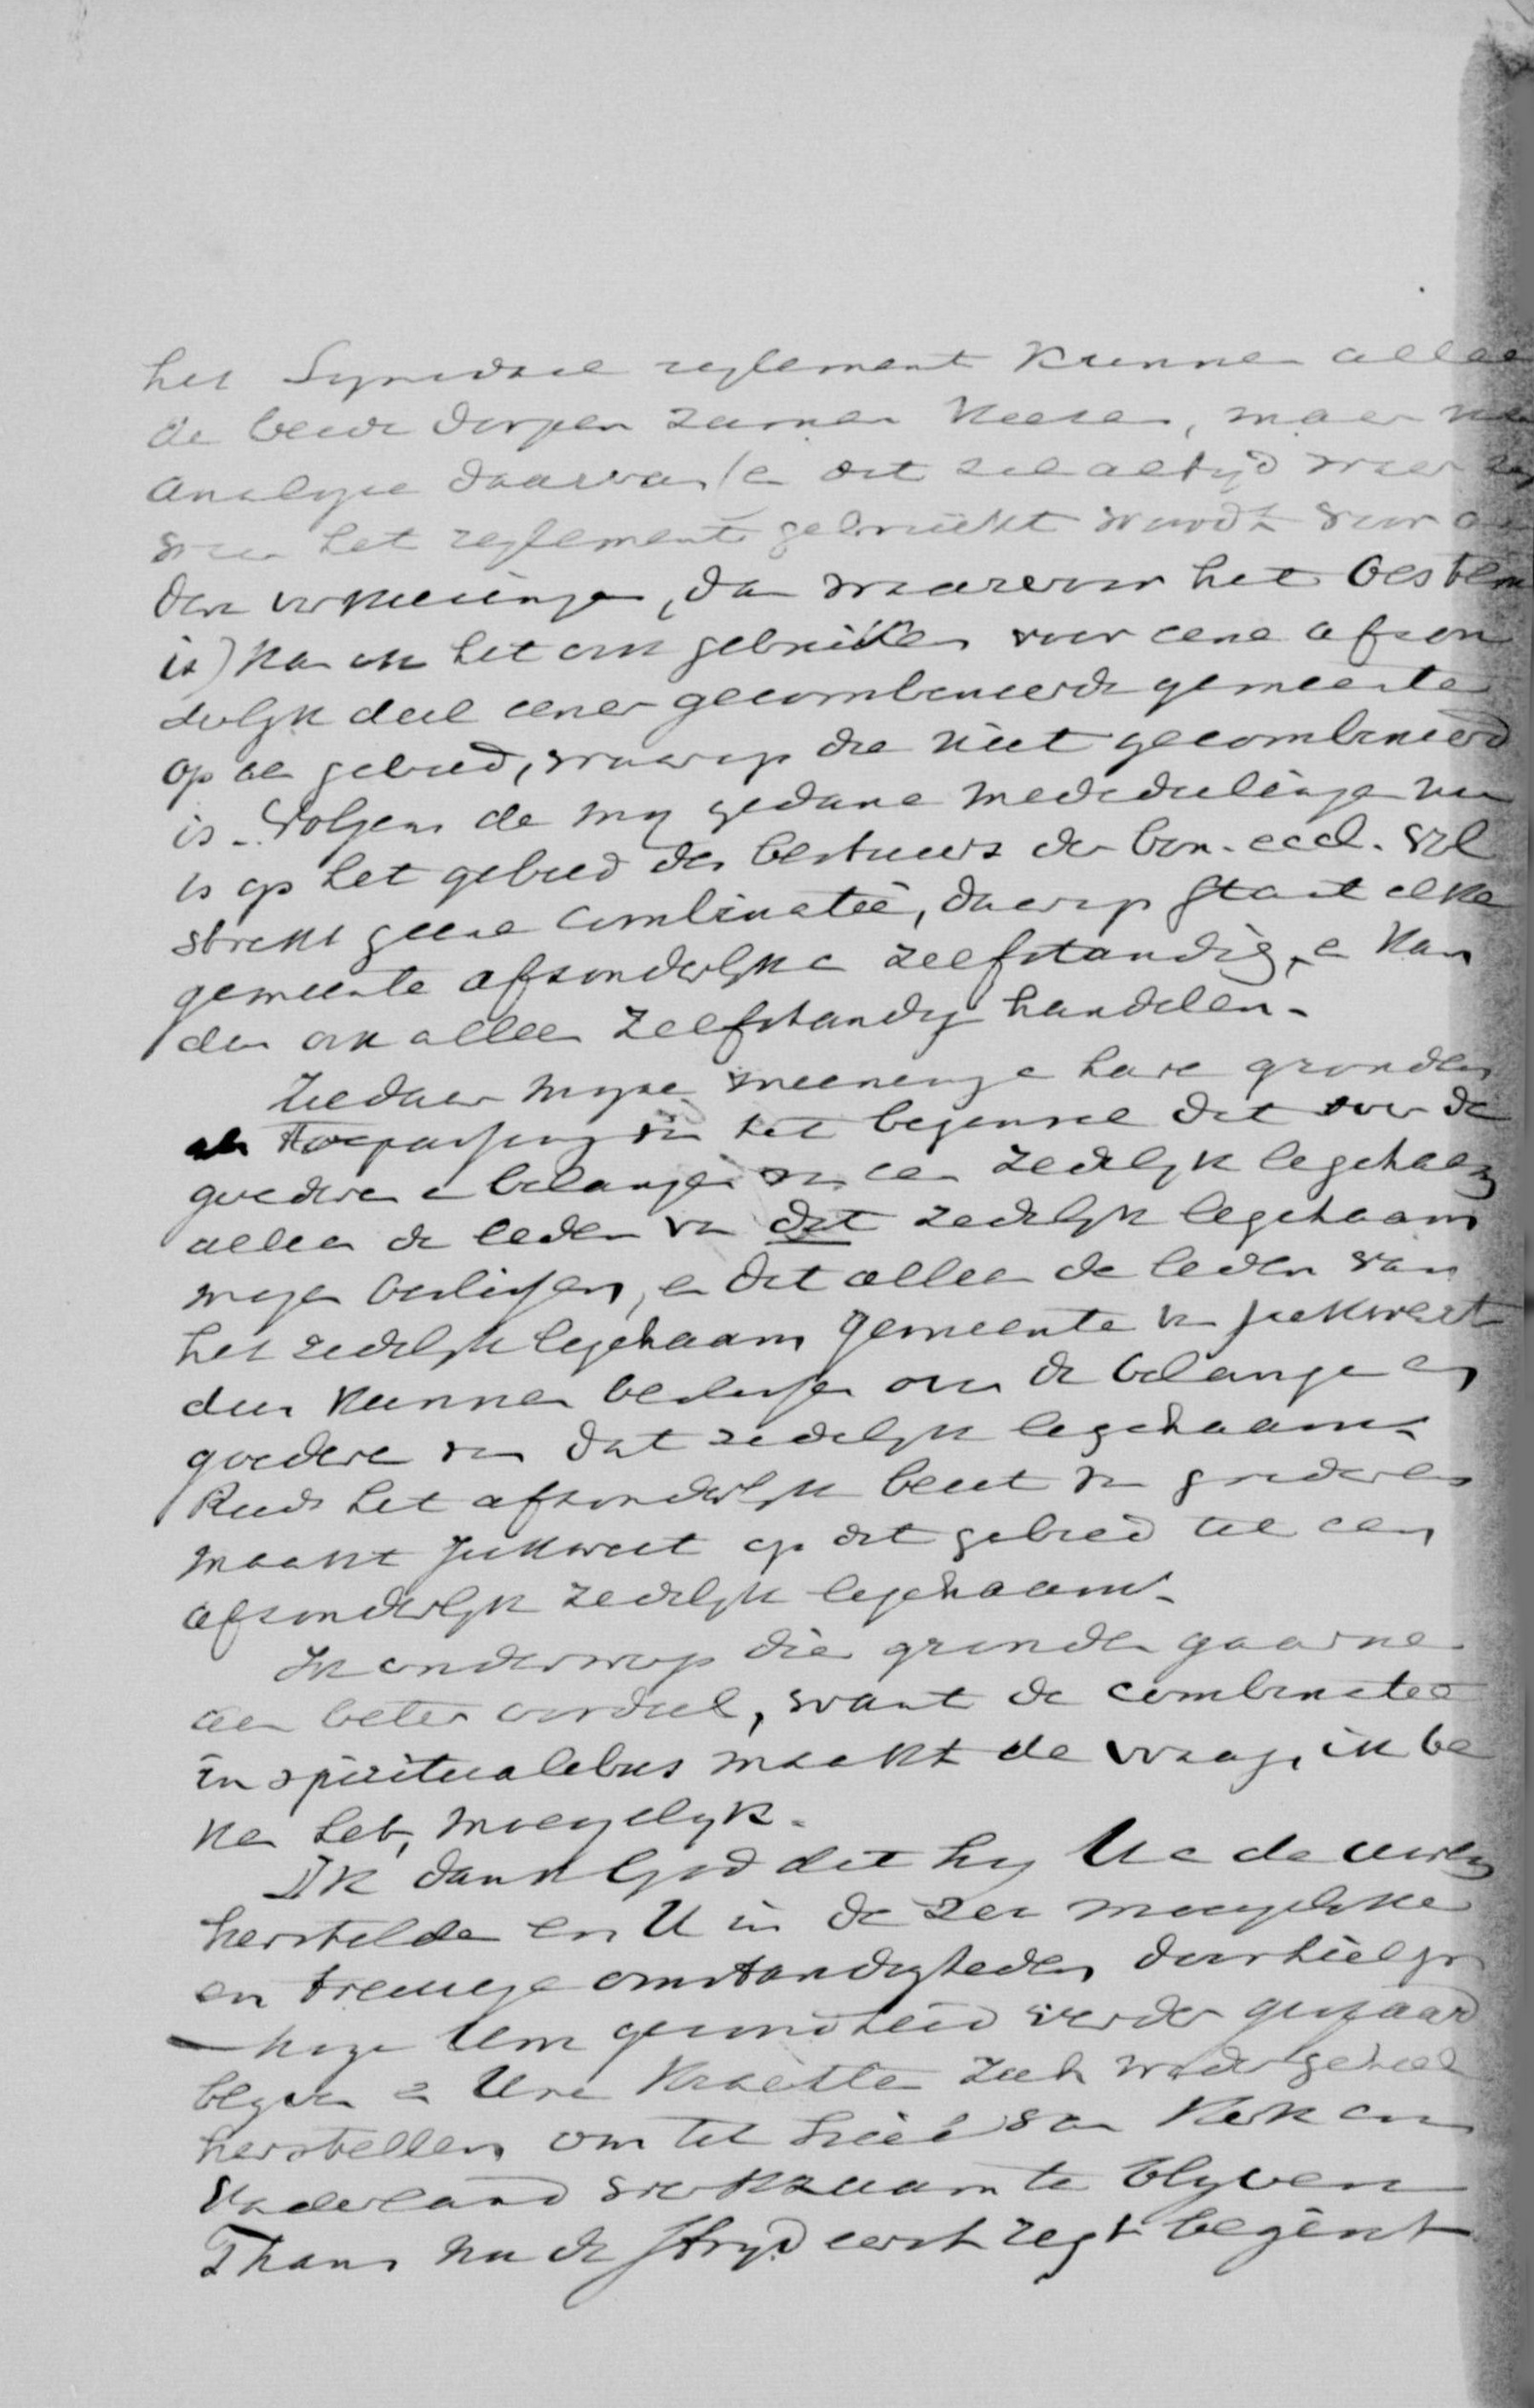 het Synodaal reglement kunnen allee
de beide dorpen zamen kiezen, maar na
analogie daarvan (en dit zal altijd waar zyn
waar het reglement gebruikt wordt voor an
dere verkiezingen, dan waarvoor het bestem
is) kan ik het ook gebruiken voor eene afzon
derlyk deel eener gecombineerde gemeente
op een gebied, waarop die niet gecombineerd
is. Volgens de my gedane mededeelingen nu
is op het gebied des bestuurs der bon. eccl. vol
strekt geene combinatie, daarop staat elke
gemeente afzonderlyk en zelfstandig, en kan
dus ook alleen zelfstandig handelen.
Ziedaar myne meening en hare gronden
als toepassing van het beginsel dat over de
goederen en belangen van een zedelyk legchaam
alleen de leden van dat zedelyk legchaam
mogen beslissen, en dat alleen de leden van
het zedelyk legchaam gemeente van Jukwert
dus kunnen beslissen over de belangen en
goederen van dat zedelyk legchaam.
Reeds het afzonderlyk bezit van goederen
maakt Jukwert op dit gebied tot een
afzonderlyk zedelyk legchaam.
Ik onderwerp die gronden gaarne
aan beter oordeel, want de combinatie
in spiritualibus maakt de vraag, ik be
ken het, moeyelyk.
Ik dank God dat hy U en de uwen
herstelde en U in de zeer moeyelyke
en treurige omstandigheden
moge Uwe gezondheid verder gespaard
blyven en Uwe krachten zich weder geheel
herstellen om tot heil van Kerk en
Vaderland werkzaam te blyven
Thans nu de stryd eerst regt begint